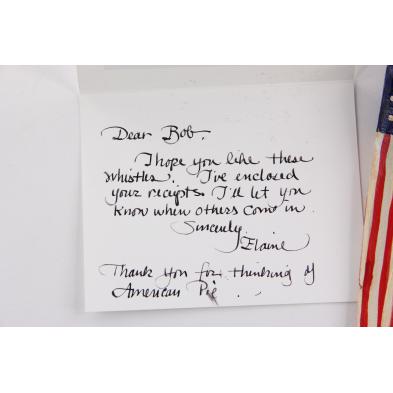 Dear Bob,
I hope you like these
whistles. I've enclosed
your receipts. I'll let you
know when others come in.
Sincerely,
Elaine
Thank you for thinking of
American Pie